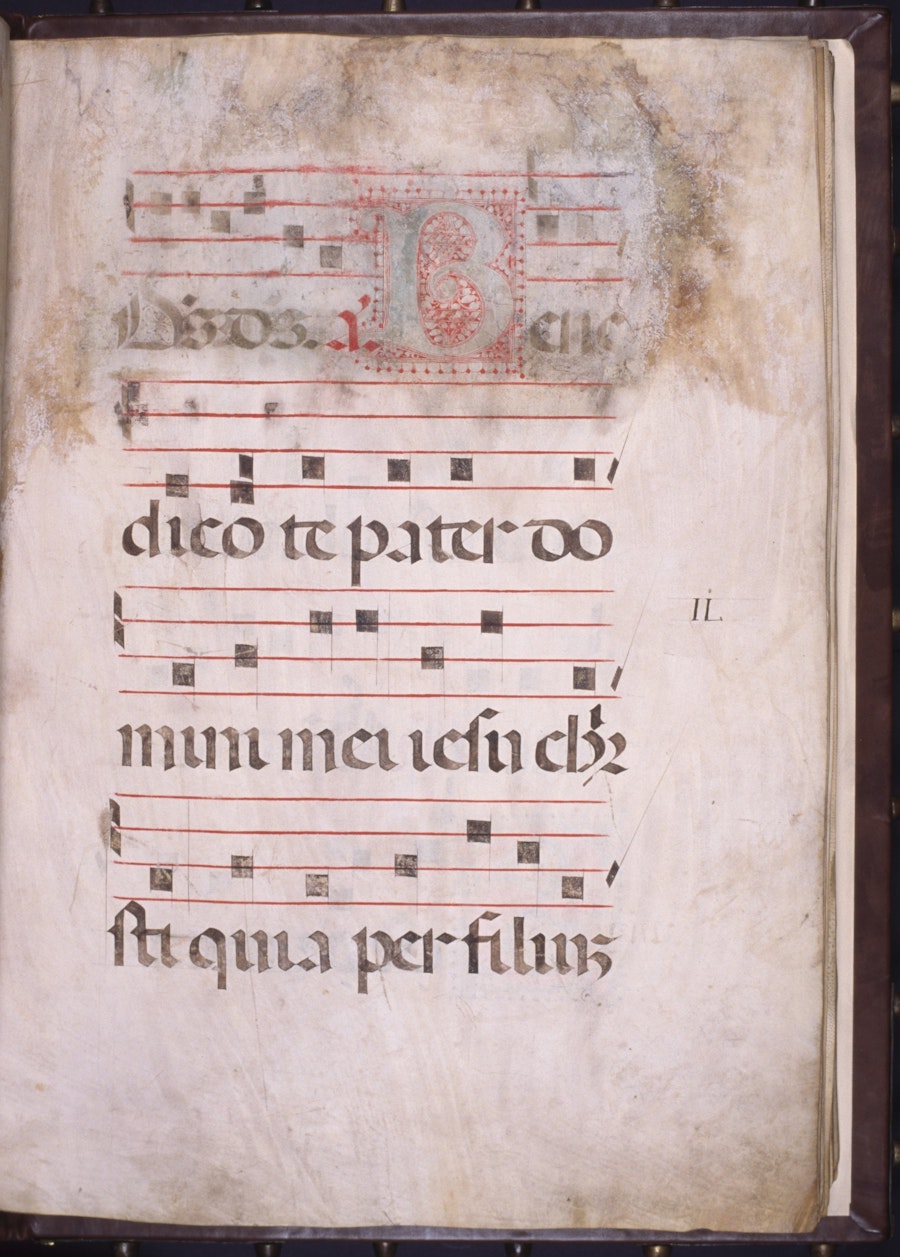 a. Bene
dico te pater do
mini mei iesu chr
II.
sti quia per filium